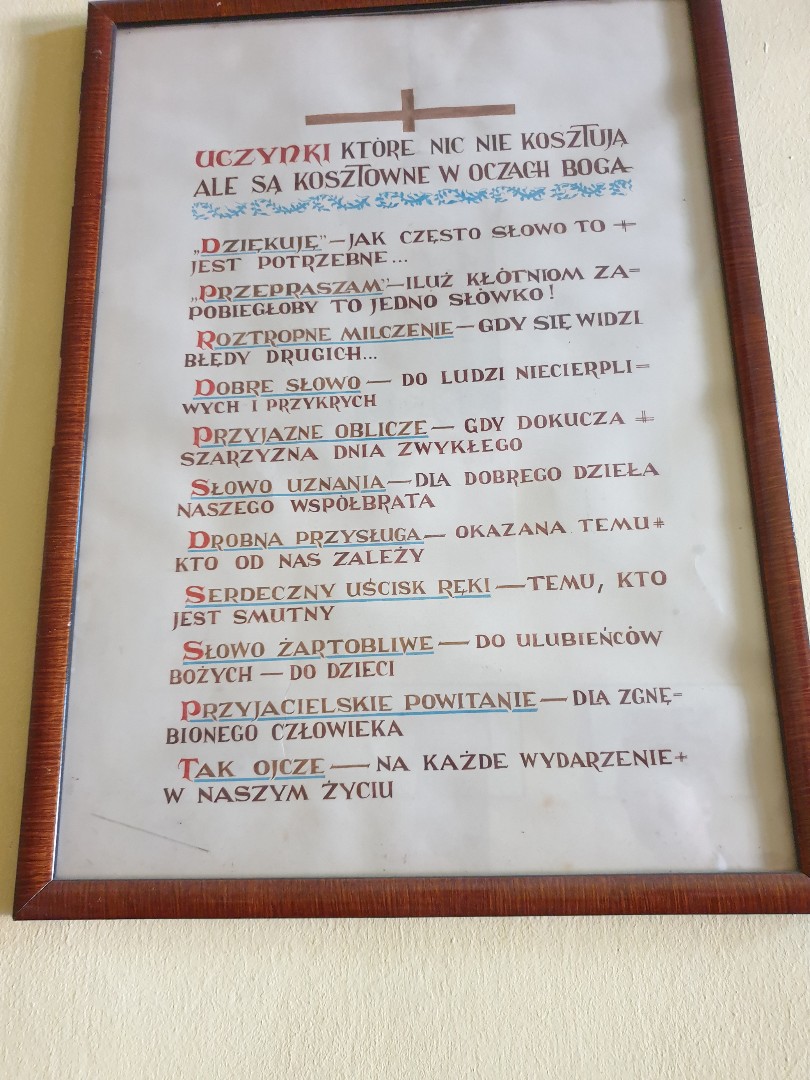 UCZYNKI KTÓRE NIC NIE KOSZTUJĄ
ALE SĄ KOSZTOWNE W OCZACH BOGA
„DZIĘKUJĘ” — JAK CZĘSTO SŁOWO TO +
JEST POTRZEBNE...
„PRZEPRASZAM” — ILUŻ KŁÓTNIOM ZA=
POBIEGŁOBY TO JEDNO SŁÓWKO!
ROZTROPNE MILCZENIE — GDY SIĘ WIDZI
BŁĘDY DRUGICH...
DOBRE SŁOWO — DO LUDZI NIECIERPLI=
WYCH I PRZYKRYCH
PRZYJAZNE OBLICZE — GDY DOKUCZA +
SZARZYZNA DNIA ZWYKŁEGO
SŁOWO UZNANIA — DLA DOBREGO DZIEŁA
NASZEGO WSPÓŁBRATA
DROBNA PRZYSŁUGA — OKAZANA TEMU +
KTO OD NAS ZALEŻY
SERDECZNY UŚCISK RĘKI — TEMU, KTO
JEST SMUTNY
SŁOWO ŻARTOBLIWE — DO ULUBIEŃCÓW
BOŻYCH — DO DZIECI
PRZYJACIELSKIE POWITANIE — DLA ZGNĘ=
BIONEGO CZŁOWIEKA
TAK OJCZE — NA KAŻDE WYDARZENIE +
W NASZYM ŻYCIU